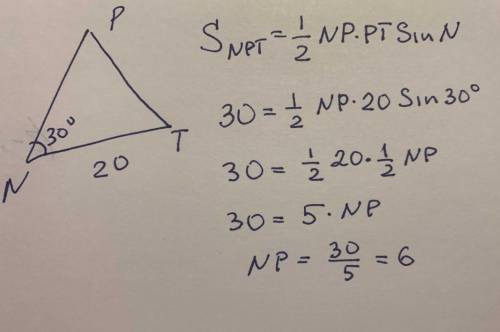 P
30°
N
20
T
S_NPT = 1/2 NP·PT Sin N
30 = 1/2 NP·20 Sin 30°
30 = 1/2 20·1/2 NP
30 = 5·NP
NP = 30/5 = 6